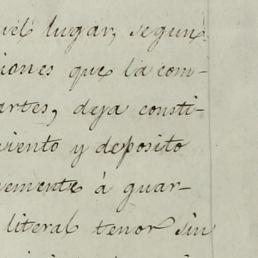 vél lugar, segun
iones que la com-
artes, deja consti-
iento y deposito
vemente á guar-
literal tenor sin